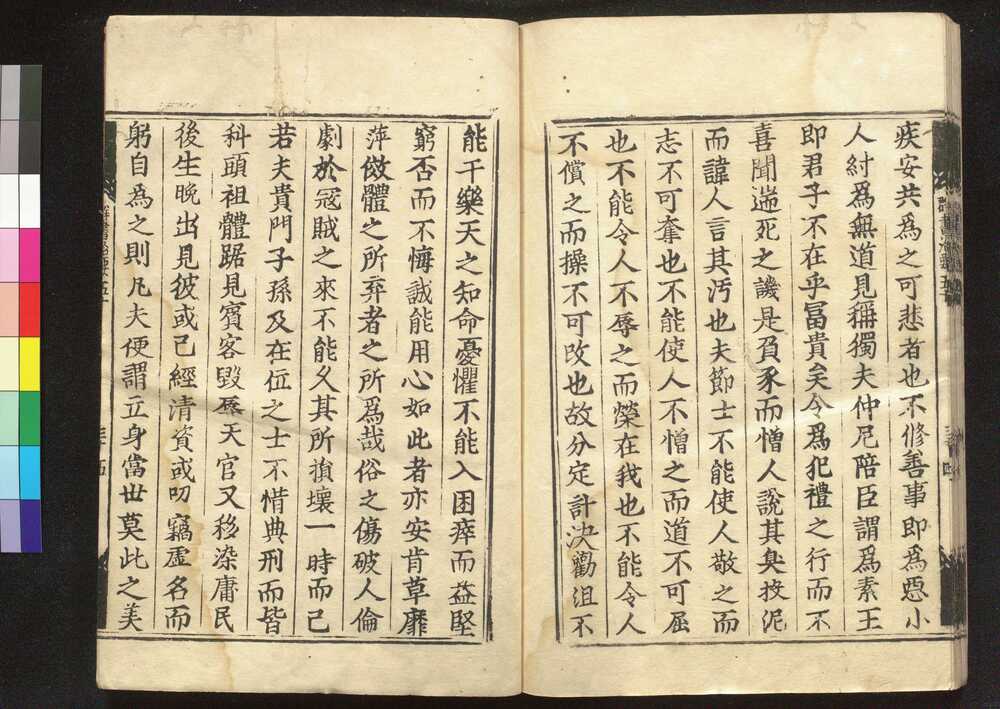 疾安共爲之可悲者也不修善事即爲惡小
人紂爲無道見稱獨夫仲尼陪臣謂爲素王
即君子不在乎冨貴矣今爲犯禮之行而不
喜聞遄死之譏是負豕而憎人說其臭投泥
而諱人言其汚也夫節士不能使人敬之而
志不可奪也不能使人不憎之而道不可屈
也不能令人不辱之而榮在我也不能令人
不償之而操不可改也故分定計決勸沮不
能干樂天之知命憂懼不能入困瘁而益堅
窮否而不悔誠能用心如此者亦安肯草靡
萍儌體之所弃者之所爲哉俗之傷破人倫
劇於冦賊之來不能久其所損壞一時而已
若夫貴門子孫及在位之士不惜典刑而皆
科頭袒體踞見賓客毀辱天官又移染庸民
後生晚出見彼或已經清資或叨竊虛名而
躬自爲之則凡夫便謂立身當世莫此之美
群書治要五十
三十五